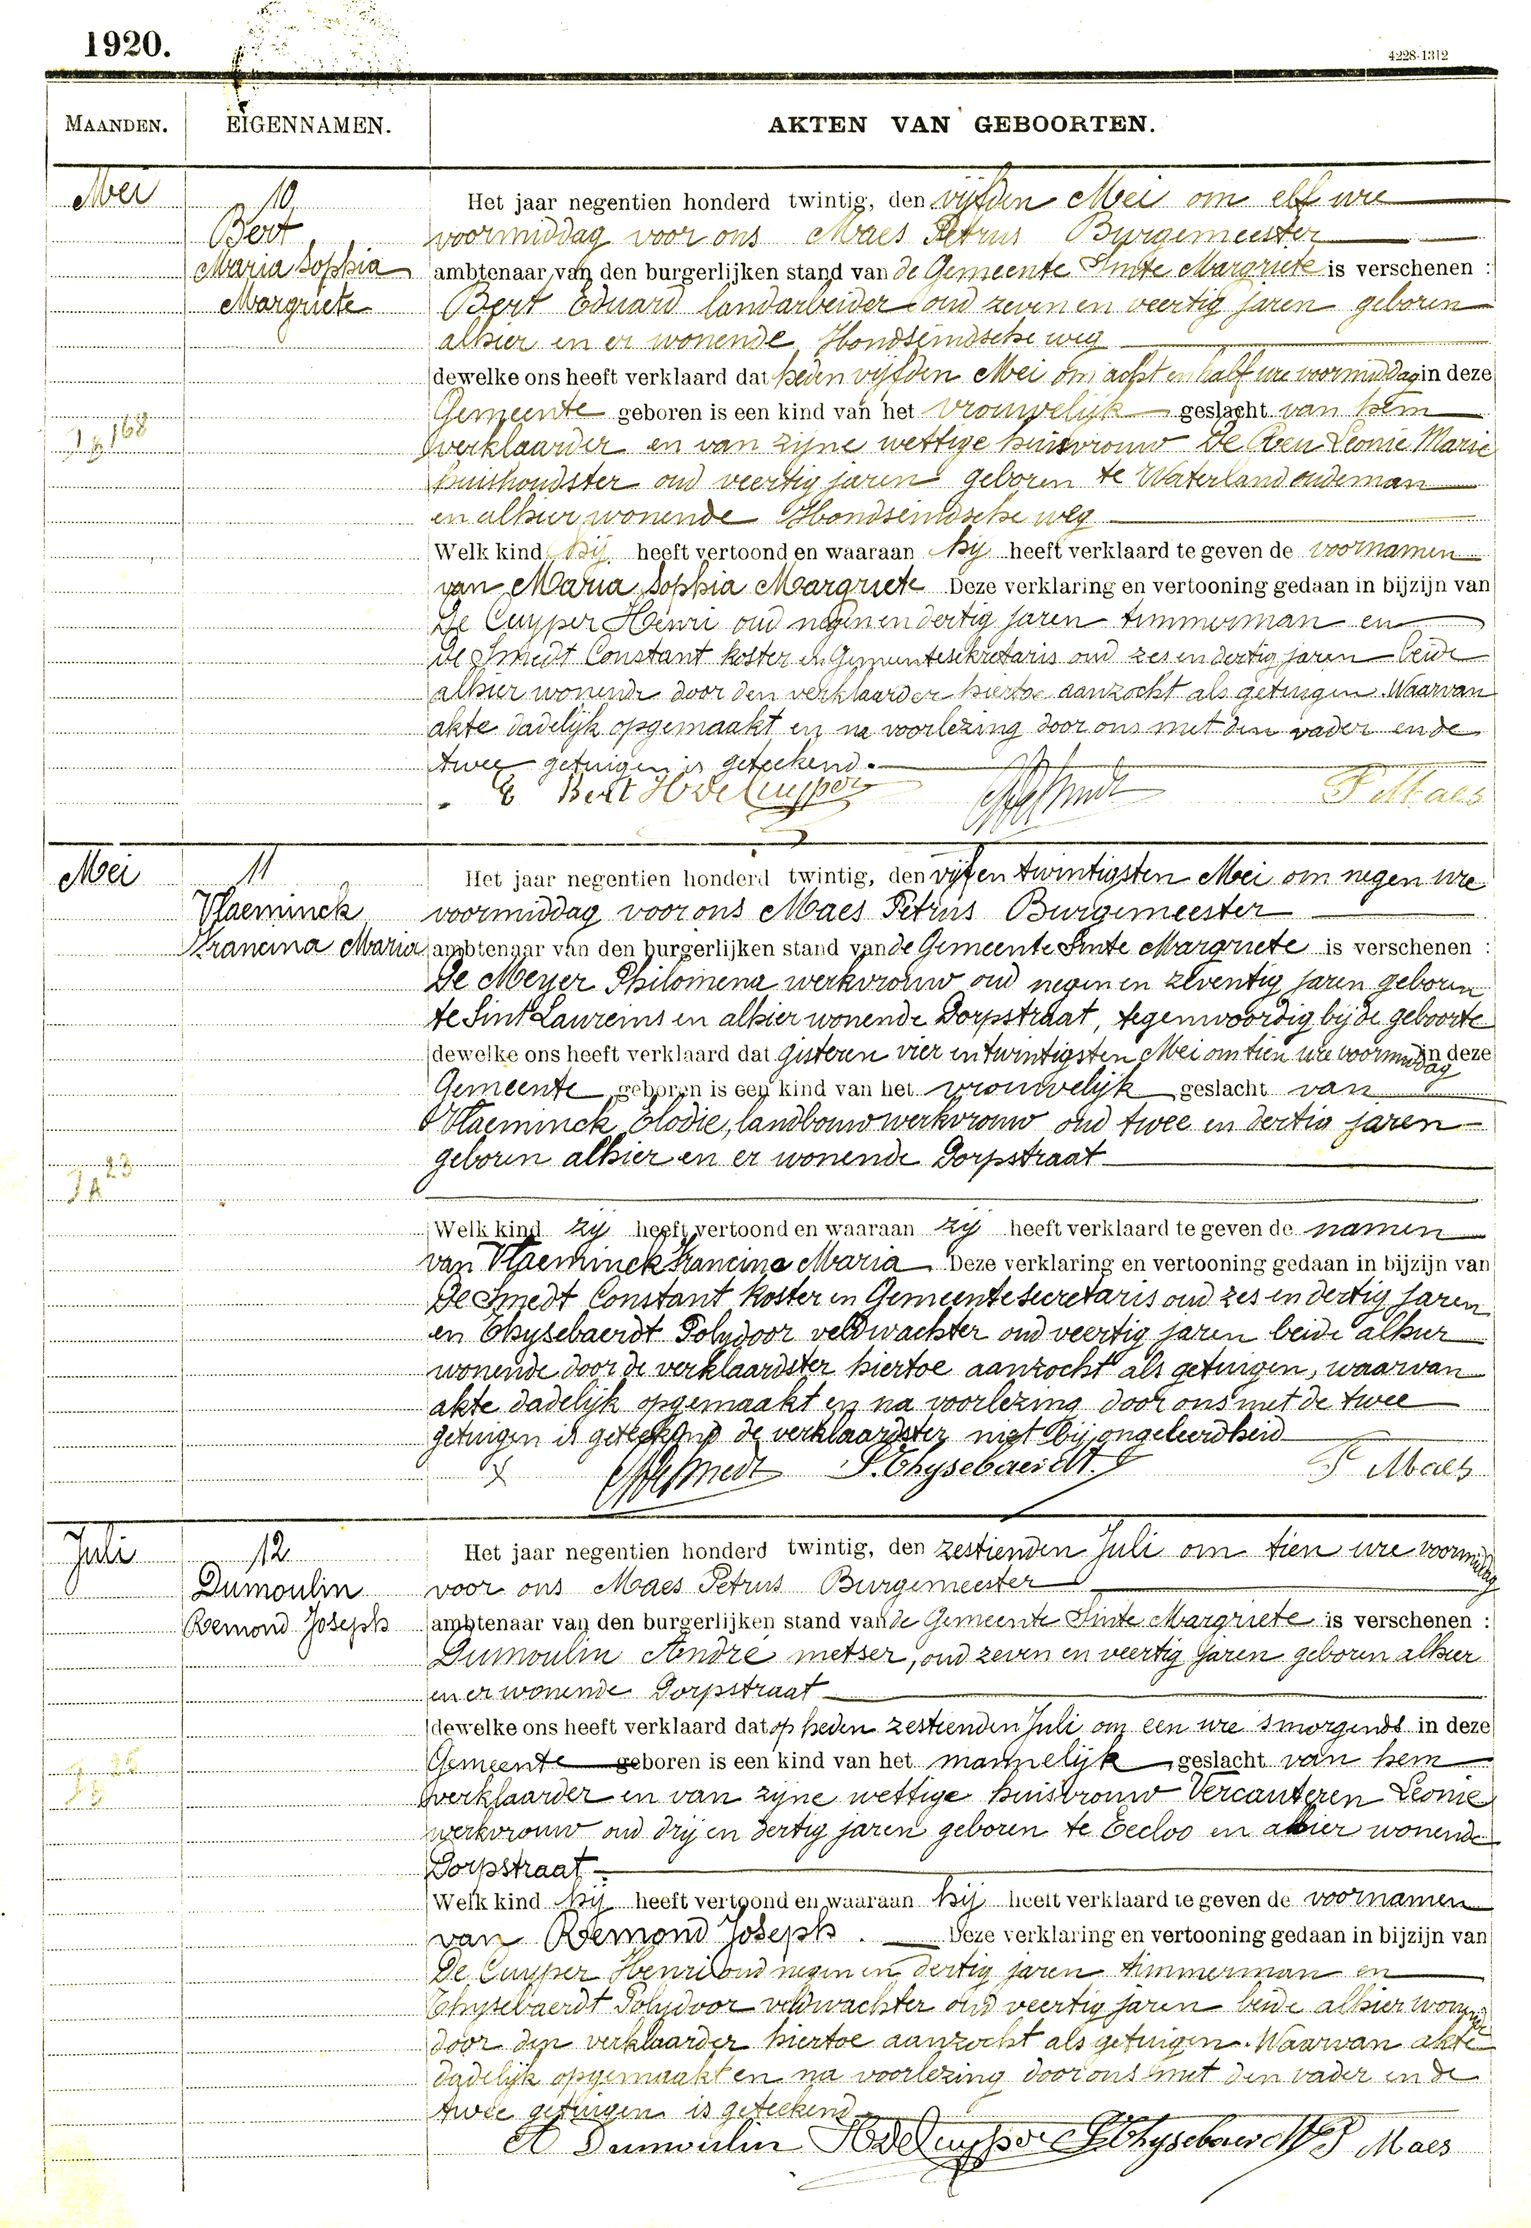 1920.
4228-1312
MAANDEN.
EIGENNAMEN.
AKTEN VAN GEBOORTEN.
Mei
10
Bert
Maria Sophia
Margriete
Het jaar negentien honderd twintig, den vijfden Mei om elf ure
voormiddag voor ons Maes Petrus Burgemeester
ambtenaar van den burgerlijken stand van de Gemeente Sinte Margriete is verschenen :
Bert Eduard landarbeider oud zeven en veertig jaren geboren
alhier en er wonende Hondseindsche weg
dewelke ons heeft verklaard dat heden vijfden Mei om acht en half ure voormiddag in deze
Gemeente geboren is een kind van het vrouwelijk geslacht van hem
verklaarder en van zijne wettige huisvrouw De Reu Leonie Marie
huishoudster oud veertig jaren geboren te Waterland oudeman
en alhier wonende Hondseindsche weg
Welk kind hij heeft vertoond en waaraan hij heeft verklaard te geven de voornamen
van Maria Sophia Margriete Deze verklaring en vertooning gedaan in bijzijn van
De Cuyper Henri oud negen en dertig jaren timmerman en
De Smedt Constant koster en Gemeentesekretaris oud zes en dertig jaren beide
alhier wonende door den verklaarder hiertoe aanzocht als getuigen. Waarvan
akte dadelijk opgemaakt en na voorlezing door ons met den vader en de
twee getuigen is geteekend.
E Bert H de Cuyper C De Smedt P Maes
J B 168
Mei
11
Vlaeminck
Francina Maria
Het jaar negentien honderd twintig, den vijf en twintigsten Mei om negen ure
voormiddag voor ons Maes Petrus Burgemeester
ambtenaar van den burgerlijken stand van de Gemeente Sinte Margriete is verschenen :
De Meyer Philomena werkvrouw oud negen en zeventig jaren geboren
te Sint Laureins en alhier wonende Dorpstraat, tegenwoordig bij de geboorte
dewelke ons heeft verklaard dat gisteren vier en twintigsten Mei om tien ure voormiddag in deze
Gemeente geboren is een kind van het vrouwelijk geslacht van
Vlaeminck Elodie, landbouwwerkvrouw oud twee en dertig jaren
geboren alhier en er wonende Dorpstraat
J A 23
Welk kind zij heeft vertoond en waaraan zij heeft verklaard te geven de namen
van Vlaeminck Francina Maria Deze verklaring en vertooning gedaan in bijzijn van
De Smedt Constant koster en Gemeentesecretaris oud zes en dertig jaren
en Thysebaerdt Polydoor veldwachter oud veertig jaren beide alhier
wonende door de verklaardster hiertoe aanzocht als getuigen, waarvan
akte dadelijk opgemaakt en na voorlezing door ons met de twee
getuigen is geteekend de verklaardster niet bij ongeleerdheid
X C De Smedt P. Thysebaerdt. P Maes
Juli
12
Dumoulin
Remond Joseph
Het jaar negentien honderd twintig, den zestienden Juli om tien ure voormiddag
voor ons Maes Petrus Burgemeester
ambtenaar van den burgerlijken stand van de Gemeente Sinte Margriete is verschenen :
Dumoulin André metser, oud zeven en veertig jaren geboren alhier
en er wonende Dorpstraat
dewelke ons heeft verklaard dat op heden zestienden Juli om een ure smorgends in deze
Gemeente geboren is een kind van het mannelijk geslacht van hem
verklaarder en van zijne wettige huisvrouw Vercauteren Leonie
werkvrouw oud drij en dertig jaren geboren te Eecloo en alhier wonende
Dorpstraat
J B 25
Welk kind hij heeft vertoond en waaraan hij heeft verklaard te geven de voornamen
van Remond Joseph. Deze verklaring en vertooning gedaan in bijzijn van
De Cuyper Henri oud negen en dertig jaren timmerman en
Thysebaerdt Polydoor veldwachter oud veertig jaren beide alhier wonende
door den verklaarder hiertoe aanzocht als getuigen. Waarvan akte
dadelijk opgemaakt en na voorlezing door ons met den vader en de
twee getuigen is geteekend
A Dumoulin H de Cuyper P Thysebaerdt P Maes